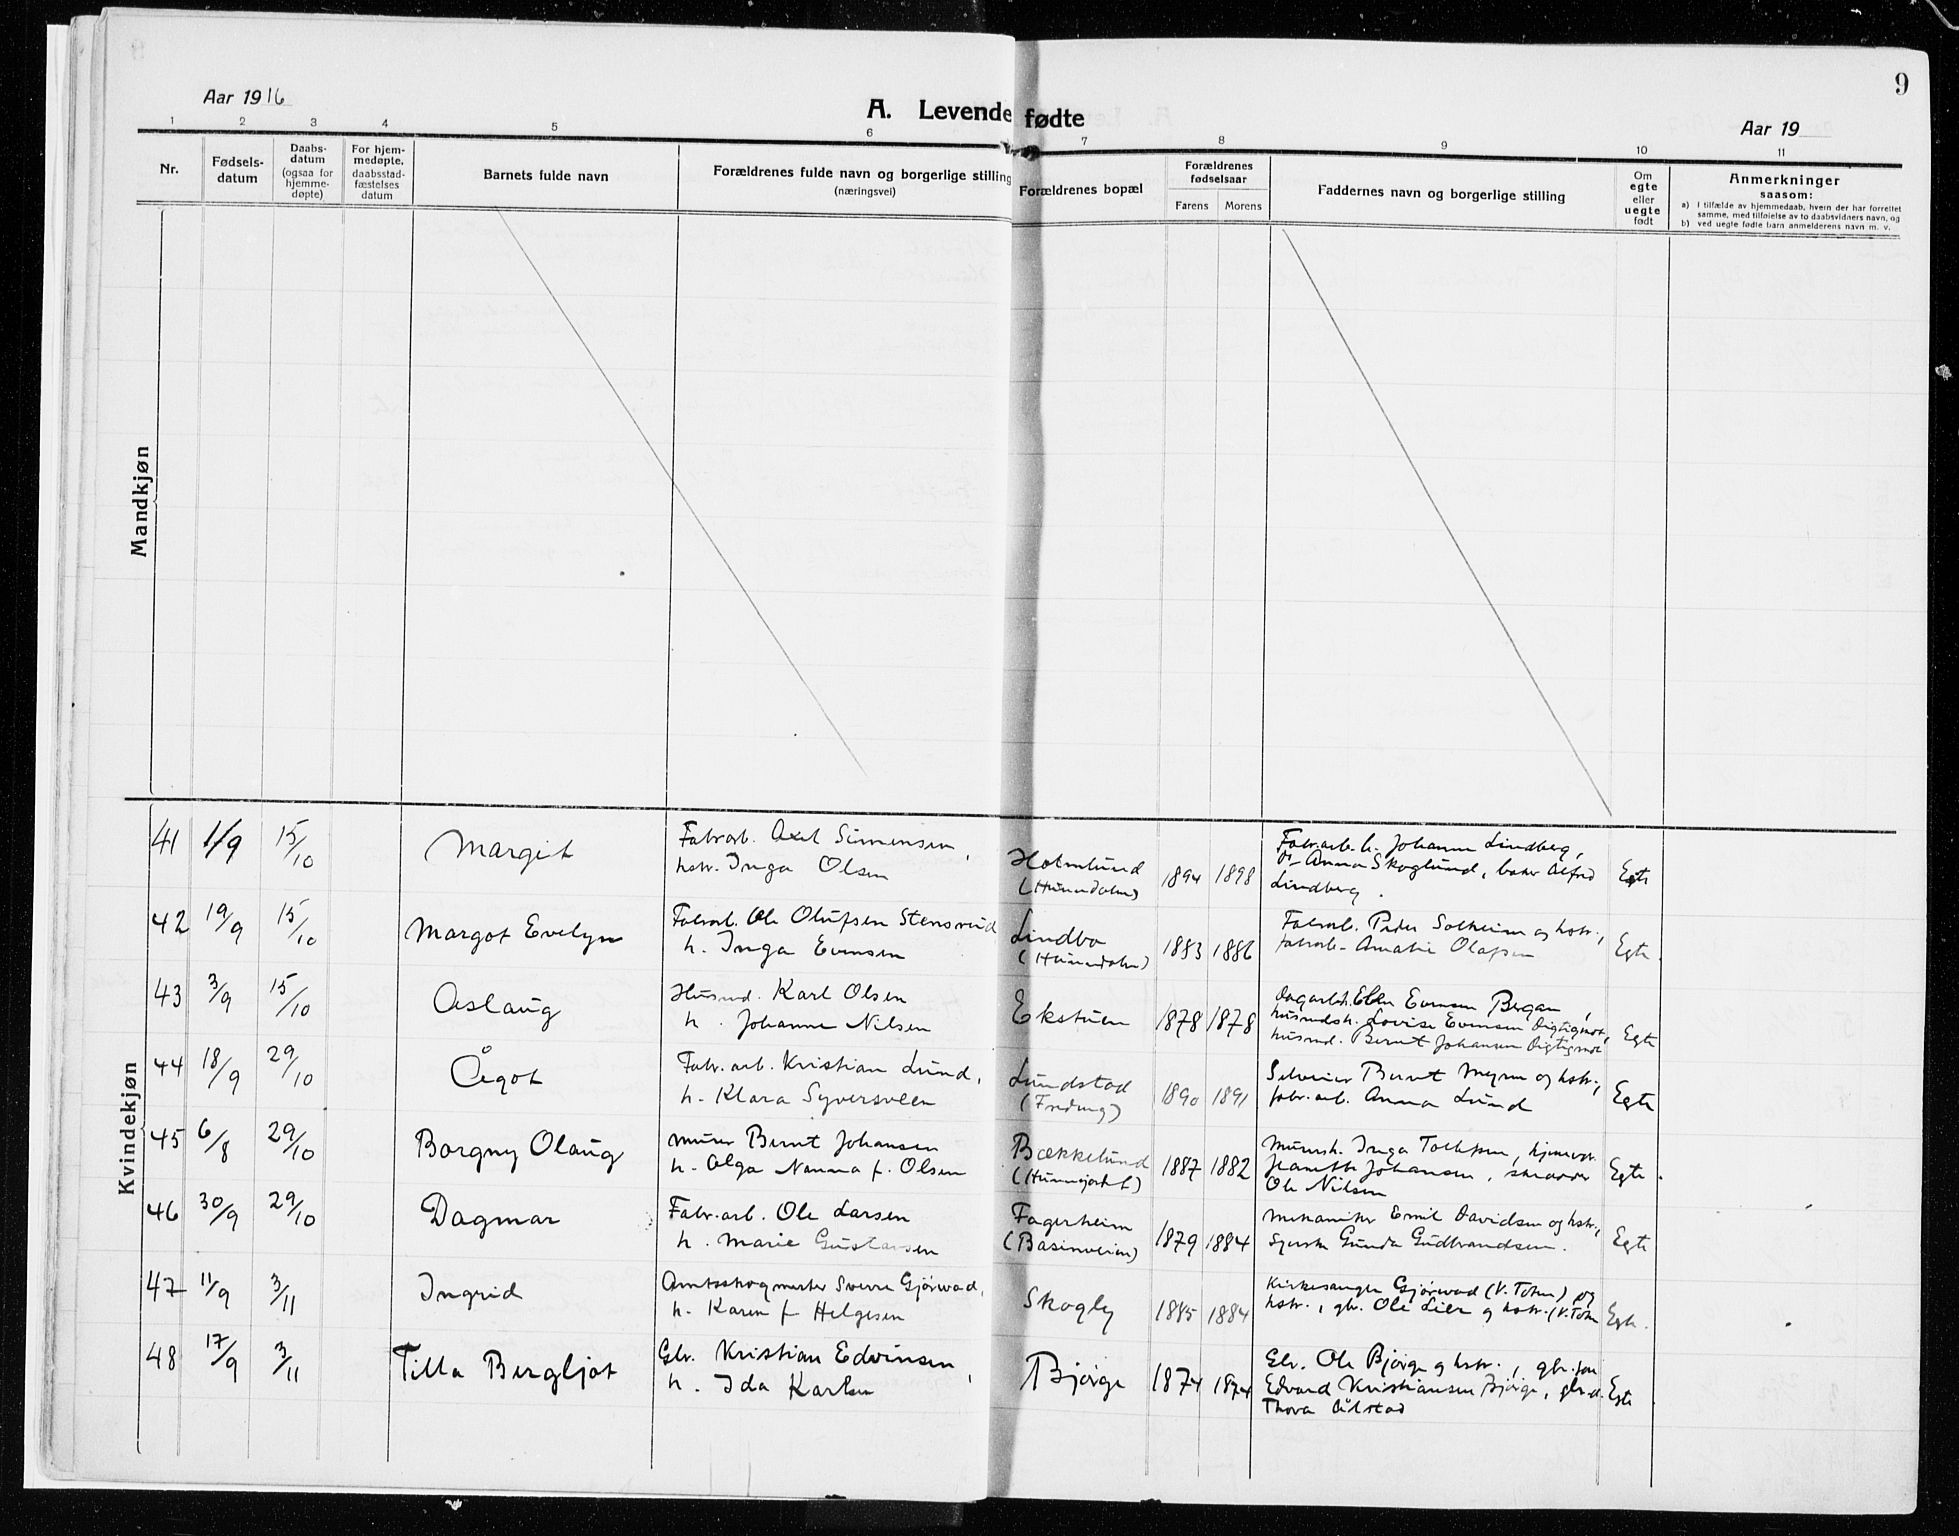 9
Aar 1916
A. Levende fødte
Aar 19
1 2 3 4 5 6 7 8 9 10 11
Nr.
Fødsels-
datum
Daabs-
datum
(ogsaa for
hjemme-
døpte)
For hjem-
medøpte,
daabsstad-
fæstelses
datum
Barnets fulde navn
Forældrenes fulde navn og borgerlige stilling
(næringsvei)
Forældrenes bopæl
Forældrenes
fødselsaar
Farens Morens
Faddernes navn og borgerlige stilling
Om
egte
eller
uegte
født
Anmerkninger
saasom:
a) I tilfælde av hjemmedaab, hvem der har forrettet
samme, med tilføielse av to daabsvidners navn, og
b) ved uegte fødte barn anmelderens navn m. v.
Mandkjøn
Kvindekjøn
41 1/9 15/10 Margit
Fabrarb. Axel Simensen,
hstr. Inga Olsen
Holmlund
(Hunndalen)
1894 1898
Fabr.arb.h. Johanne Lindberg,
Anna Skoglund, baker Alfred
Lindberg.
Egte
42 19/9 15/10 Margot Evelyn
Fabrarb. Ole Olufsen Stensrud
h. Inga Evensen
Lindbo
(Hunndalen)
1883 1886
Fabrarb. Peder Solheim og hstr.,
fabrarb. Amalie Olafsen
Egte.
43 3/9 15/10 Aslaug
Husmd. Karl Olsen
h. Johanne Nilsen
Ekstuen
1878 1878
Dagarb. Evensen Bergan,
husmdsh. Lovise Evensen
husmd. Bernt Johansen
Egte
44 18/9 29/10 Ågot
Fabr.arb. Kristian Lund,
h. Klara Syversveen
Lundstad
1890 1891
Bernt Myren og hstr.,
fabr.arb. Anna Lund
Egte
45 6/8 29/10 Borgny Olaug
Murer Bernt Johansen
h. Olga Nanna f. Olsen
Bækkelund
1887 1882
Murersh. Inga Tollefsen,
Jeanette Johansen, skrædder
Ole Nilsen
Egte.
46 30/9 29/10 Dagmar
Fabr.arb. Ole Larsen
h. Marie Gustavsen
Fagerheim
1879 1884
Mekaniker Emil Davidsen og hstr.,
Gunda Gudbrandsen.
Egte
47 11/9 3/11 Ingrid
Amtsskogmester Sverre Gjørwad,
h. Karen f. Helgesen
Skogly
1885 1884
Kirkesanger Gjørwad (V. Toten) og
hstr., gbr. Ole Lien og hstr. (V. Toten
Egte.
48 17/9 3/11 Tilla Bergljot
Gbr. Kristian Edvinsen,
h. Ida Karlsen
Bjørge
1874 1874
Gbr. Ole Bjørge og hstr., gbr.søn
Edvard Kristiansen Bjørge, gbr.d.
Thora Ålstad
Egte